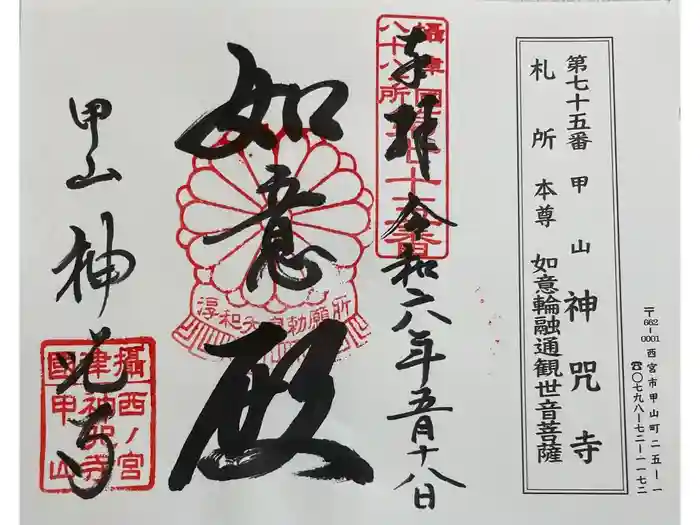 第七十五番 甲山 神咒寺
札所 本尊 如意輪融通観世音菩薩
〒662-0001 西宮市甲山町二五ー一
☎〇七九八ー七二ー一一七二
奉拝 令和六年五月十八日
攝津國八十八所第七十五番
如意殿
淳和天皇勅願所
甲山 神咒寺
攝津國 西ノ宮 神咒寺 甲山